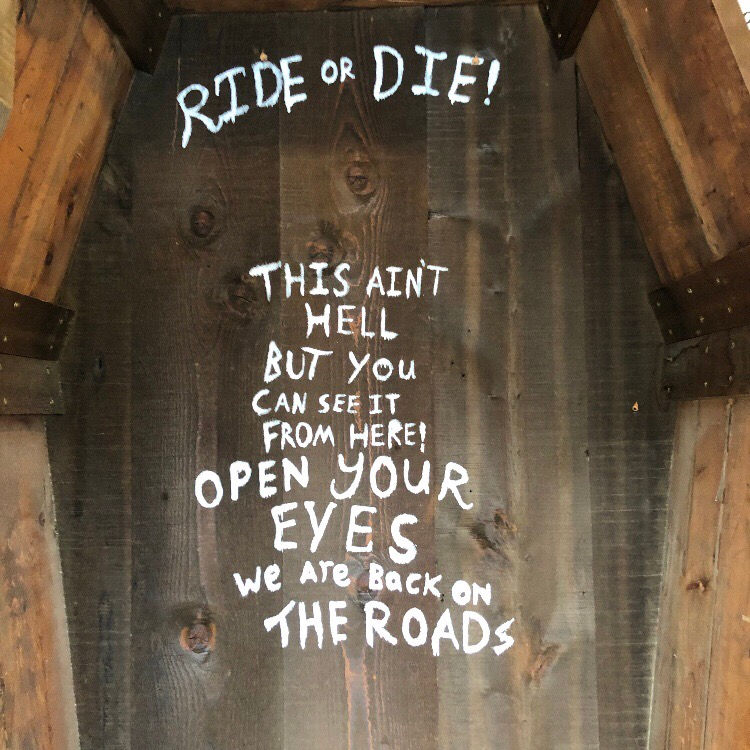 RIDE OR DIE!
THIS AIN'T
HELL
BUT YOU
CAN SEE IT
FROM HERE!
OPEN YOUR
EYES
We Are Back ON
THE ROADS